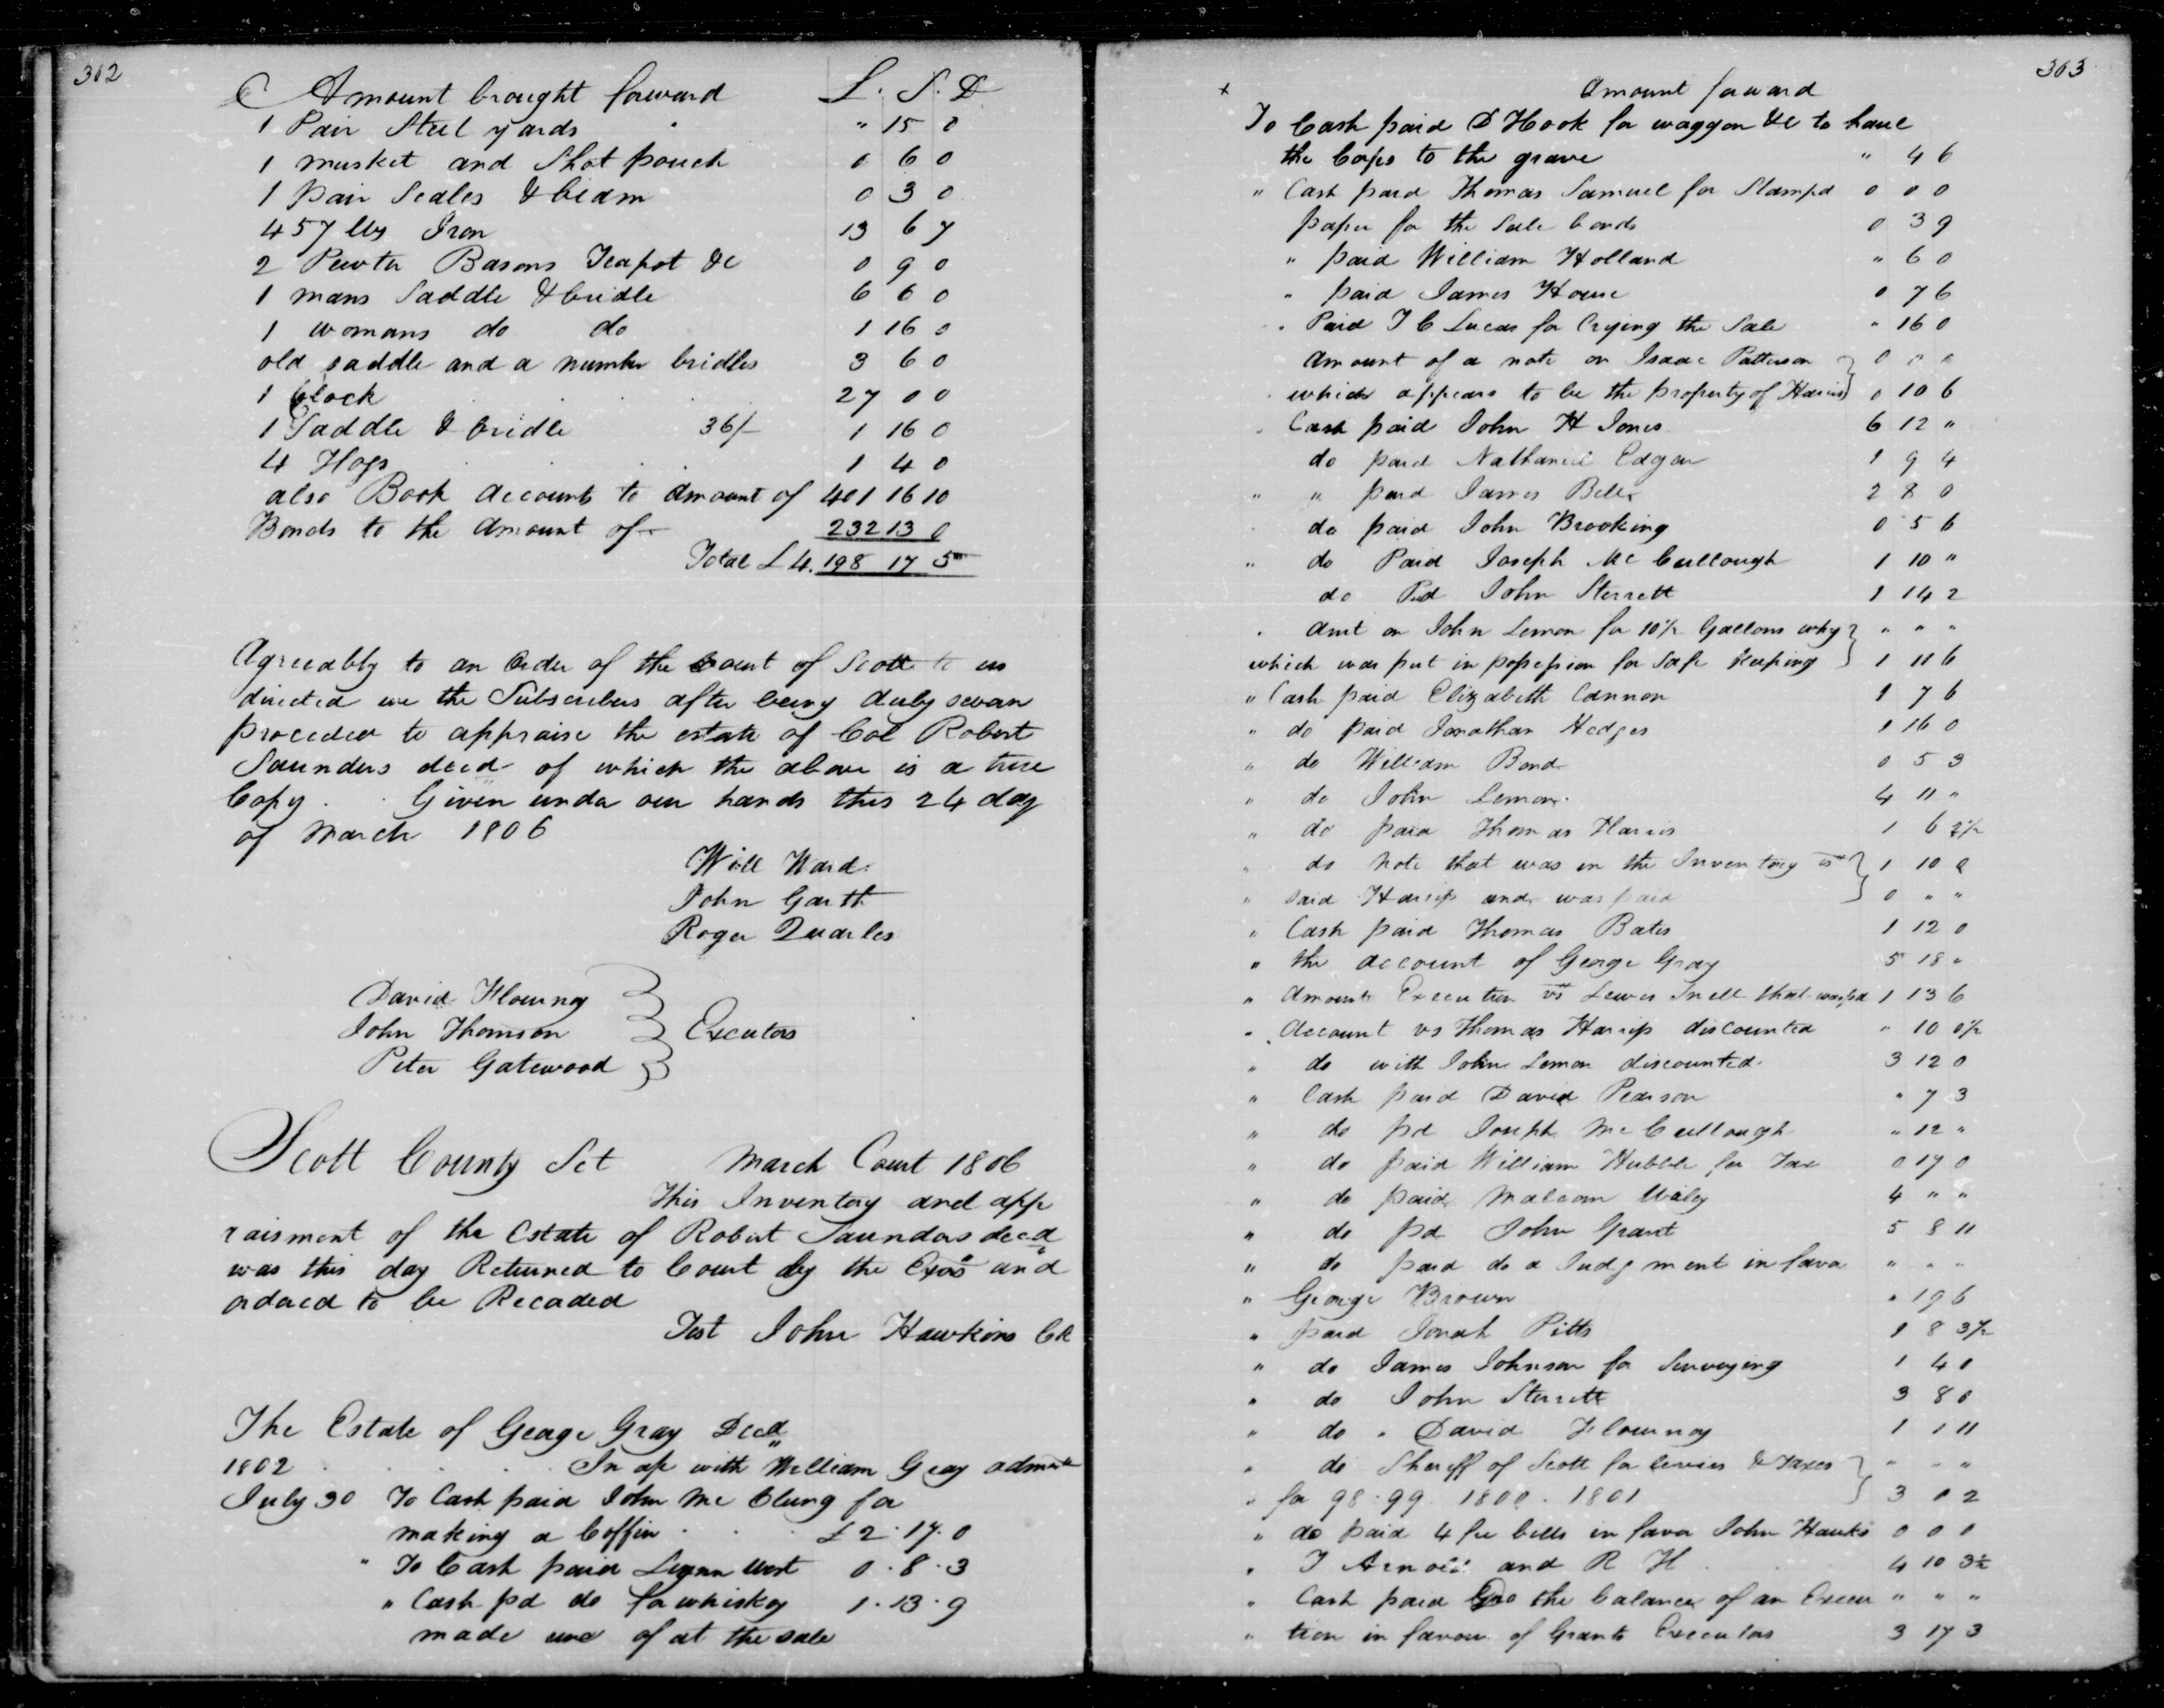 362
Amount brought forward L. S. D
1 Pair Steel yards " 15 0
1 musket and Shot pouch 0 6 0
1 pair Scales & beam 0 3 0
457 lbs Iron 13 6 7
2 Pewter Basons Teapot &c 0 9 0
1 mans Saddle & bridle 6 6 0
1 womans do do 1 16 0
old saddle and a number bridles 3 6 0
1 Clock 27 0 0
1 Saddle & bridle 36/- 1 16 0
4 Hogs 1 4 0
also Book accounts to amount of 401 16 10
Bonds to the amount of 232 13 0
Total £ 4.198 17 5
Agreeably to an Order of the Court of Scott to us
directed we the Subscribers after being duly sworn
proceeded to appraise the estate of Col Robert
Saunders decd of which the above is a true
Copy . . Given under our hands this 24 day
of March 1806
Will Ward
John Garth
Roger Quarles
David Flournoy
John Thomson } Excutors
Peter Gatewood
Scott County Sct March Court 1806
This Inventory and app
raisment of the Estate of Robert Saunders decd
was this day Returned to Court by the Exos and
ordered to be Recorded
Test John Hawkins Ck
The Estate of George Gray Decd
1802 In ac with William Gray admr
July 30 To Cash paid John Mc Clung for
making a Coffin £ 2 . 17 . 0
" To Cash paid West 0 . 8 . 3
" Cash pd do for whiskey 1 . 13 . 9
made use of at the sale
363
+ Amount forward
To Cash paid D Hook for waggon &c to haul
the Corps to the grave " 4 6
" Cash paid Thomas Samuel for Stampd 0 0 0
paper for the Sale bonds 0 3 9
" paid William Holland " 6 0
" paid James House 0 7 6
" Paid J C Lucas for Crying the Sale " 16 0
amount of a note on Isaac Patterson } 0 " "
which appears to be the property of Harris 0 10 6
Cash paid John H Jones 6 12 "
do paid Nathaniel Edgar 1 9 4
" " paid James Bell 2 8 0
do paid John Brooking 0 5 6
" do Paid Joseph Mc Cullough 1 10 "
do Pad John Sterrett 1 14 2
. Amt on John Lemon for 10½ Gallons why } " " "
which was put in possession for safe keeping 1 11 6
" Cash paid Elizabeth Cannon 1 7 6
" do paid Jonathan Hedges 1 16 0
" do William Bond 0 5 3
" do John Lemon 4 11 "
" do paid Thomas Harris 1 6 2½
" do note that was in the Inventory vs } 1 10 0
" said Harris and was paid 0 " "
" Cash paid Thomas Bates 1 12 0
" the account of George Gray 5 18 "
" Amount Execution vs Lewis Snell that was pd 1 13 6
" Account vs Thomas Harris discounted " 10 0½
" do with John Lemon discounted 3 12 0
" Cash paid David Pearson " 7 3
" do pd Joseph Mc Cullough " 12 "
" do paid William Hubble for Tax 0 17 0
" do paid Malcom Wiley 4 " "
" do pd John Grant 5 8 11
" do paid do a Judg ment in favor " " "
" George Brown " 19 6
" paid Jonah Pitts 1 8 3½
" do James Johnson for Surveying 1 4 0
" do John Sterrett 3 8 0
" do " David Flournoy 1 1 11
" do Sheriff of Scott for levies & Taxes } " " "
" for 98 . 99 . 1800 . 1801 3 0 2
" do paid 4 fee bills in favor John Hawks 0 0 0
" J Arnold and R H 4 10 3½
" Cash paid the balance of an Execu " " "
" tion in favour of Grants Executors 3 17 3